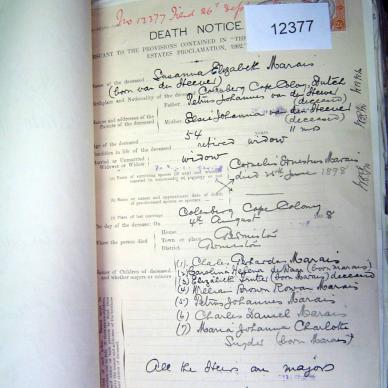 No 12377 Filed 26th Sep
12377
DEATH NOTICE
PURSUANT TO THE PROVISIONS CONTAINED IN "THE
ESTATES PROCLAMATION, 1902"
Name of the deceased Susanna Elizabeth Marais
(born van der Heever)
Birthplace and Nationality of the deceased Colesberg Cape Colony, Dutch
Names and addresses of the Parents of the deceased Father Petrus Johannes van der Heever (deceased)
Mother Johanna van den Heever (deceased)
Age of the deceased 54 years 11 mos
Condition in life of the deceased retired widow
Married or Unmarried Widower or Widow widow
(1) Name of surviving spouse (if any) and whether married in community of property or not Cornelis Marais
(2) Name or names and approximate date of death of predeceased spouse or spouses died 25th June 1898
(3) Place of last marriage Colesberg Cape Colony
The day of the decease: On 4th August
Where the person died
House Germiston
Town or place
District Germiston
Names of Children of deceased and whether majors or minors
(1) Charles Marais
(2) Carolina Helena de Wage (born Marais)
(3) Elizabeth (born Marais) deceased
(4) William Brown Marais
(5) Petrus Johannes Marais
(6) Charles Daniel Marais
(7) Maria Johanna Charlotte
Snyder (born Marais)
All the Heirs are majors